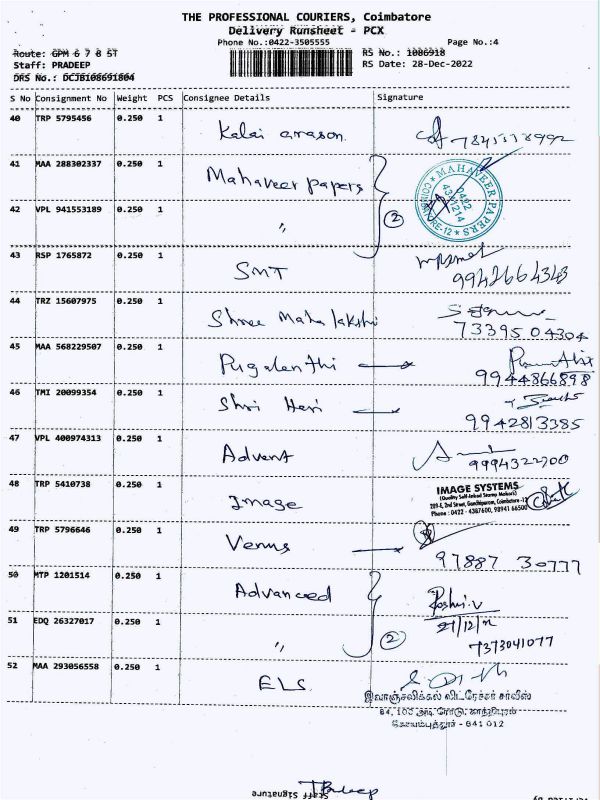 THE PROFESSIONAL COURIERS, Coimbatore
Delivery Runsheet - PCX
Phone No.:0422-3505555 Page No.:4
Route: GPM 6 7 8 ST RS No.: 1086918
Staff: PRADEEP RS Date: 28-Dec-2022
DRS No.: DCJB108691804
S No Consignment No Weight PCS Consignee Details Signature
40 TRP 5795456 0.250 1 Kalai arason
41 MAA 288302337 0.250 1 Mahaveer papers MAHAVEER PAPERS COIMBATORE-12
42 VPL 941553189 0.250 1 〃 2
43 RSP 1765872 0.250 1 SMT 9942664343
44 TRZ 15607975 0.250 1 Shree Mahalakshi 7339504304
45 MAA 568229507 0.250 1 Pugalenthi 9944866898
46 TMI 20099354 0.250 1 Shri Hari 9942813385
47 VPL 400974313 0.250 1 Advent 9994322700
48 TRP 5410738 0.250 1 Image
IMAGE SYSTEMS
(Quality Self-Inked Stamp Makers)
209-E, 2nd Street, Gandhipuram, Coimbatore -12
Phone : 0422 - 4387600, 98941 66500
49 TRP 5796646 0.250 1 Venus 97887 30777
50 MTP 1201514 0.250 1 Advanced Roshni.V
51 EDQ 26327017 0.250 1 〃 2 7373041077
52 MAA 293056558 0.250 1 ELS
84, 100 அடி ரோடு, காந்திபுரம்
கோயம்புத்தூர் - 641 012
Staff Signature